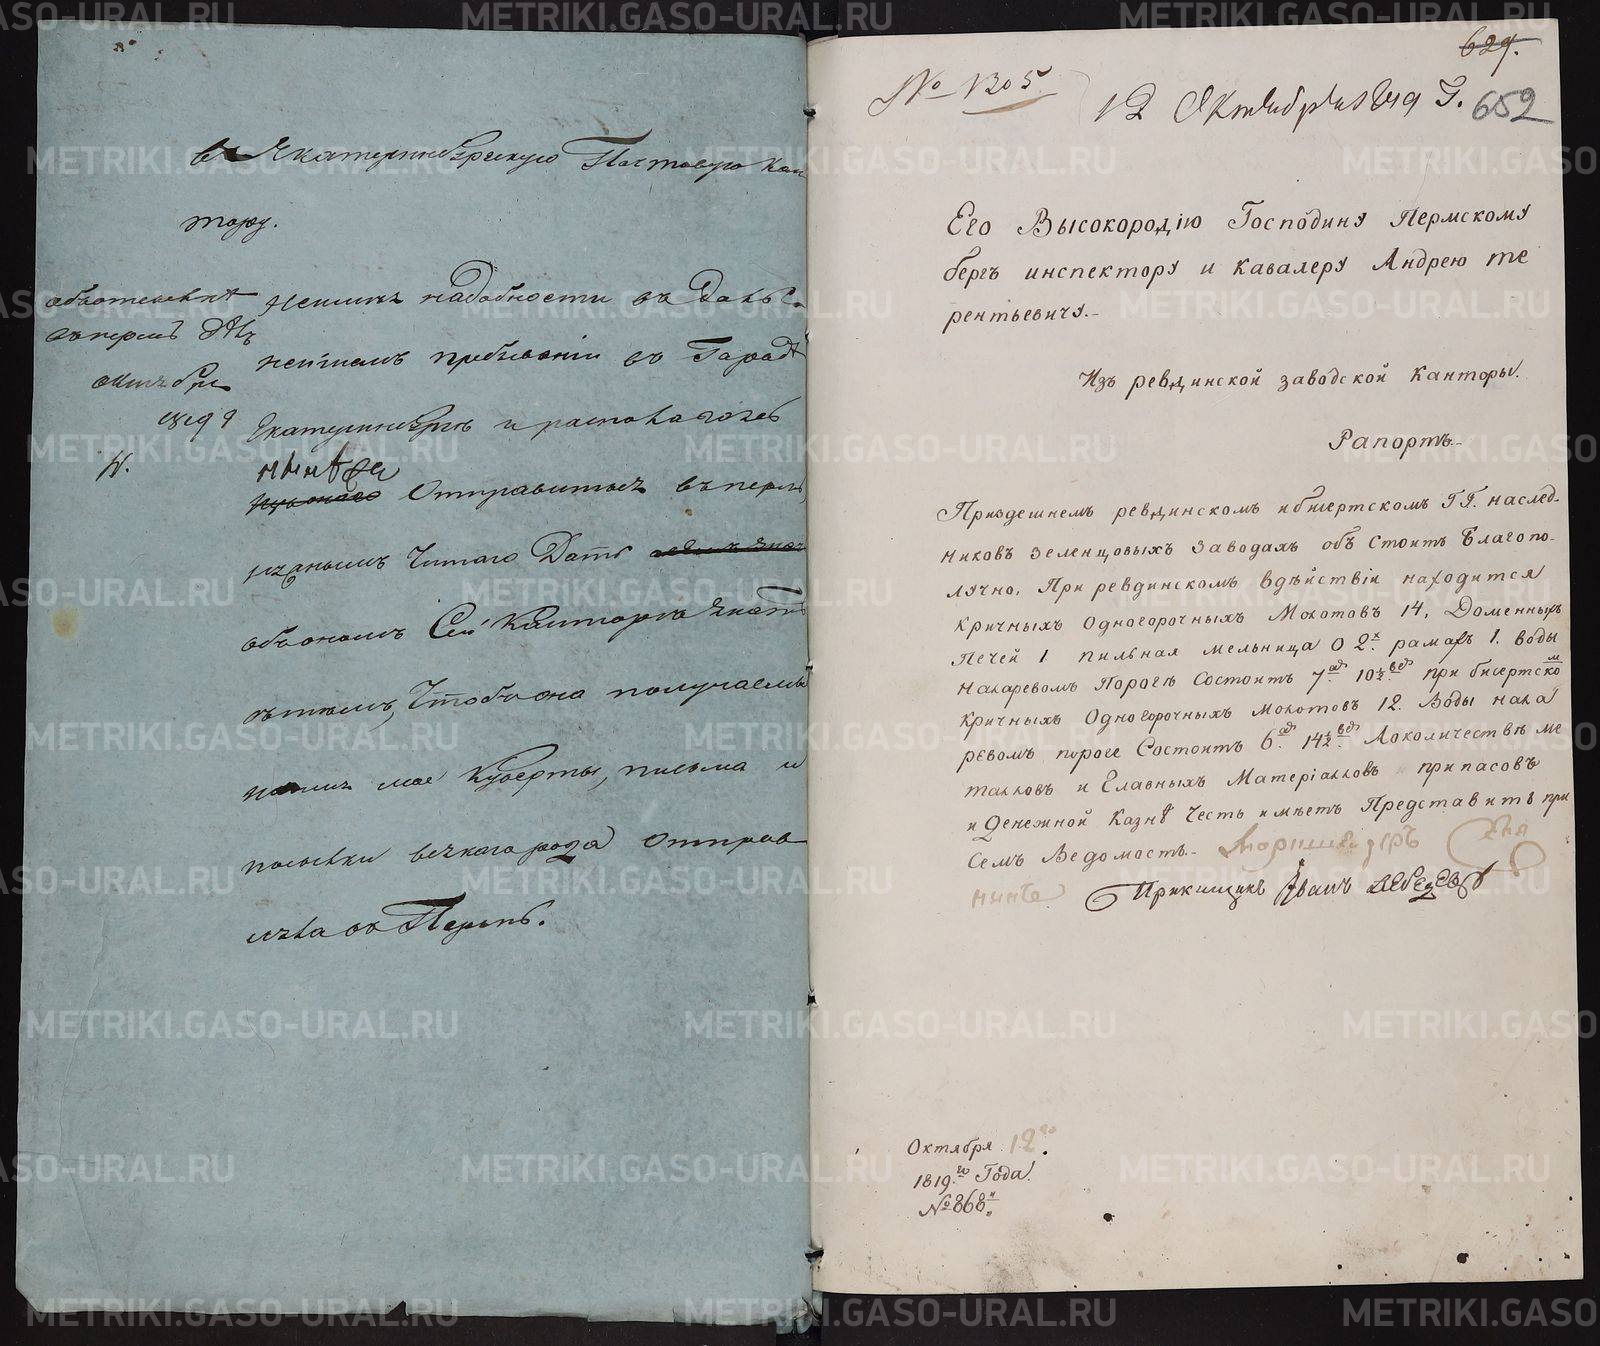 въ Екатеринбургскую Почтовую кан
тору.
неимея надобности въ даль
нейшемъ пребываніи въ Городѣ
Екатеринбургѣ и располагаясь
нынѣ же
Отправиться въ пермь
Сей Канторѣ
чтобы она получаемыя
на имя мое Куверты, письма и
посылки всякаго рода Отправ
ляла въ Пермь.
октября
1819
№ 1305
12 Октября 1819 Г.
629.
652
Его Высокородію Господину Пермскому
бергъ инспектору и кавалеру Андрею те
рентьевичу.-
Изъ ревдинской заводской канторы.
Рапортъ.-
Приздешнемъ ревдинскомъ ибисертскомъ ГГ. наслед-
никовъ зеленцовыхъ заводахъ объ стоитъ благопо-
лучно. При ревдинскомъ вдѣйствіи находится
кричныхъ Одногорочныхъ Молотовъ 14, Доменныхъ
Печей 1 пильная мельница О 2х. рамахъ 1. воды
наларевомъ Порогѣ Состоитъ 7 ар. 10½ вер. при бисертском
кричныхъ Одногорочныхъ молотовъ 12. Воды нала
ревомъ пороге Состоитъ 6 ар. 14½ вер. Аоколичествѣ ме
талловъ и Главныхъ Матеріалловъ припасовъ
и Денежной Казнѣ Честь имѣетъ Представить при
Семъ Ведомость.-
Прикащикъ Иванъ
Октября 12го.
1819го Года.
№ 868й
METRIKI.GASO-URAL.RU